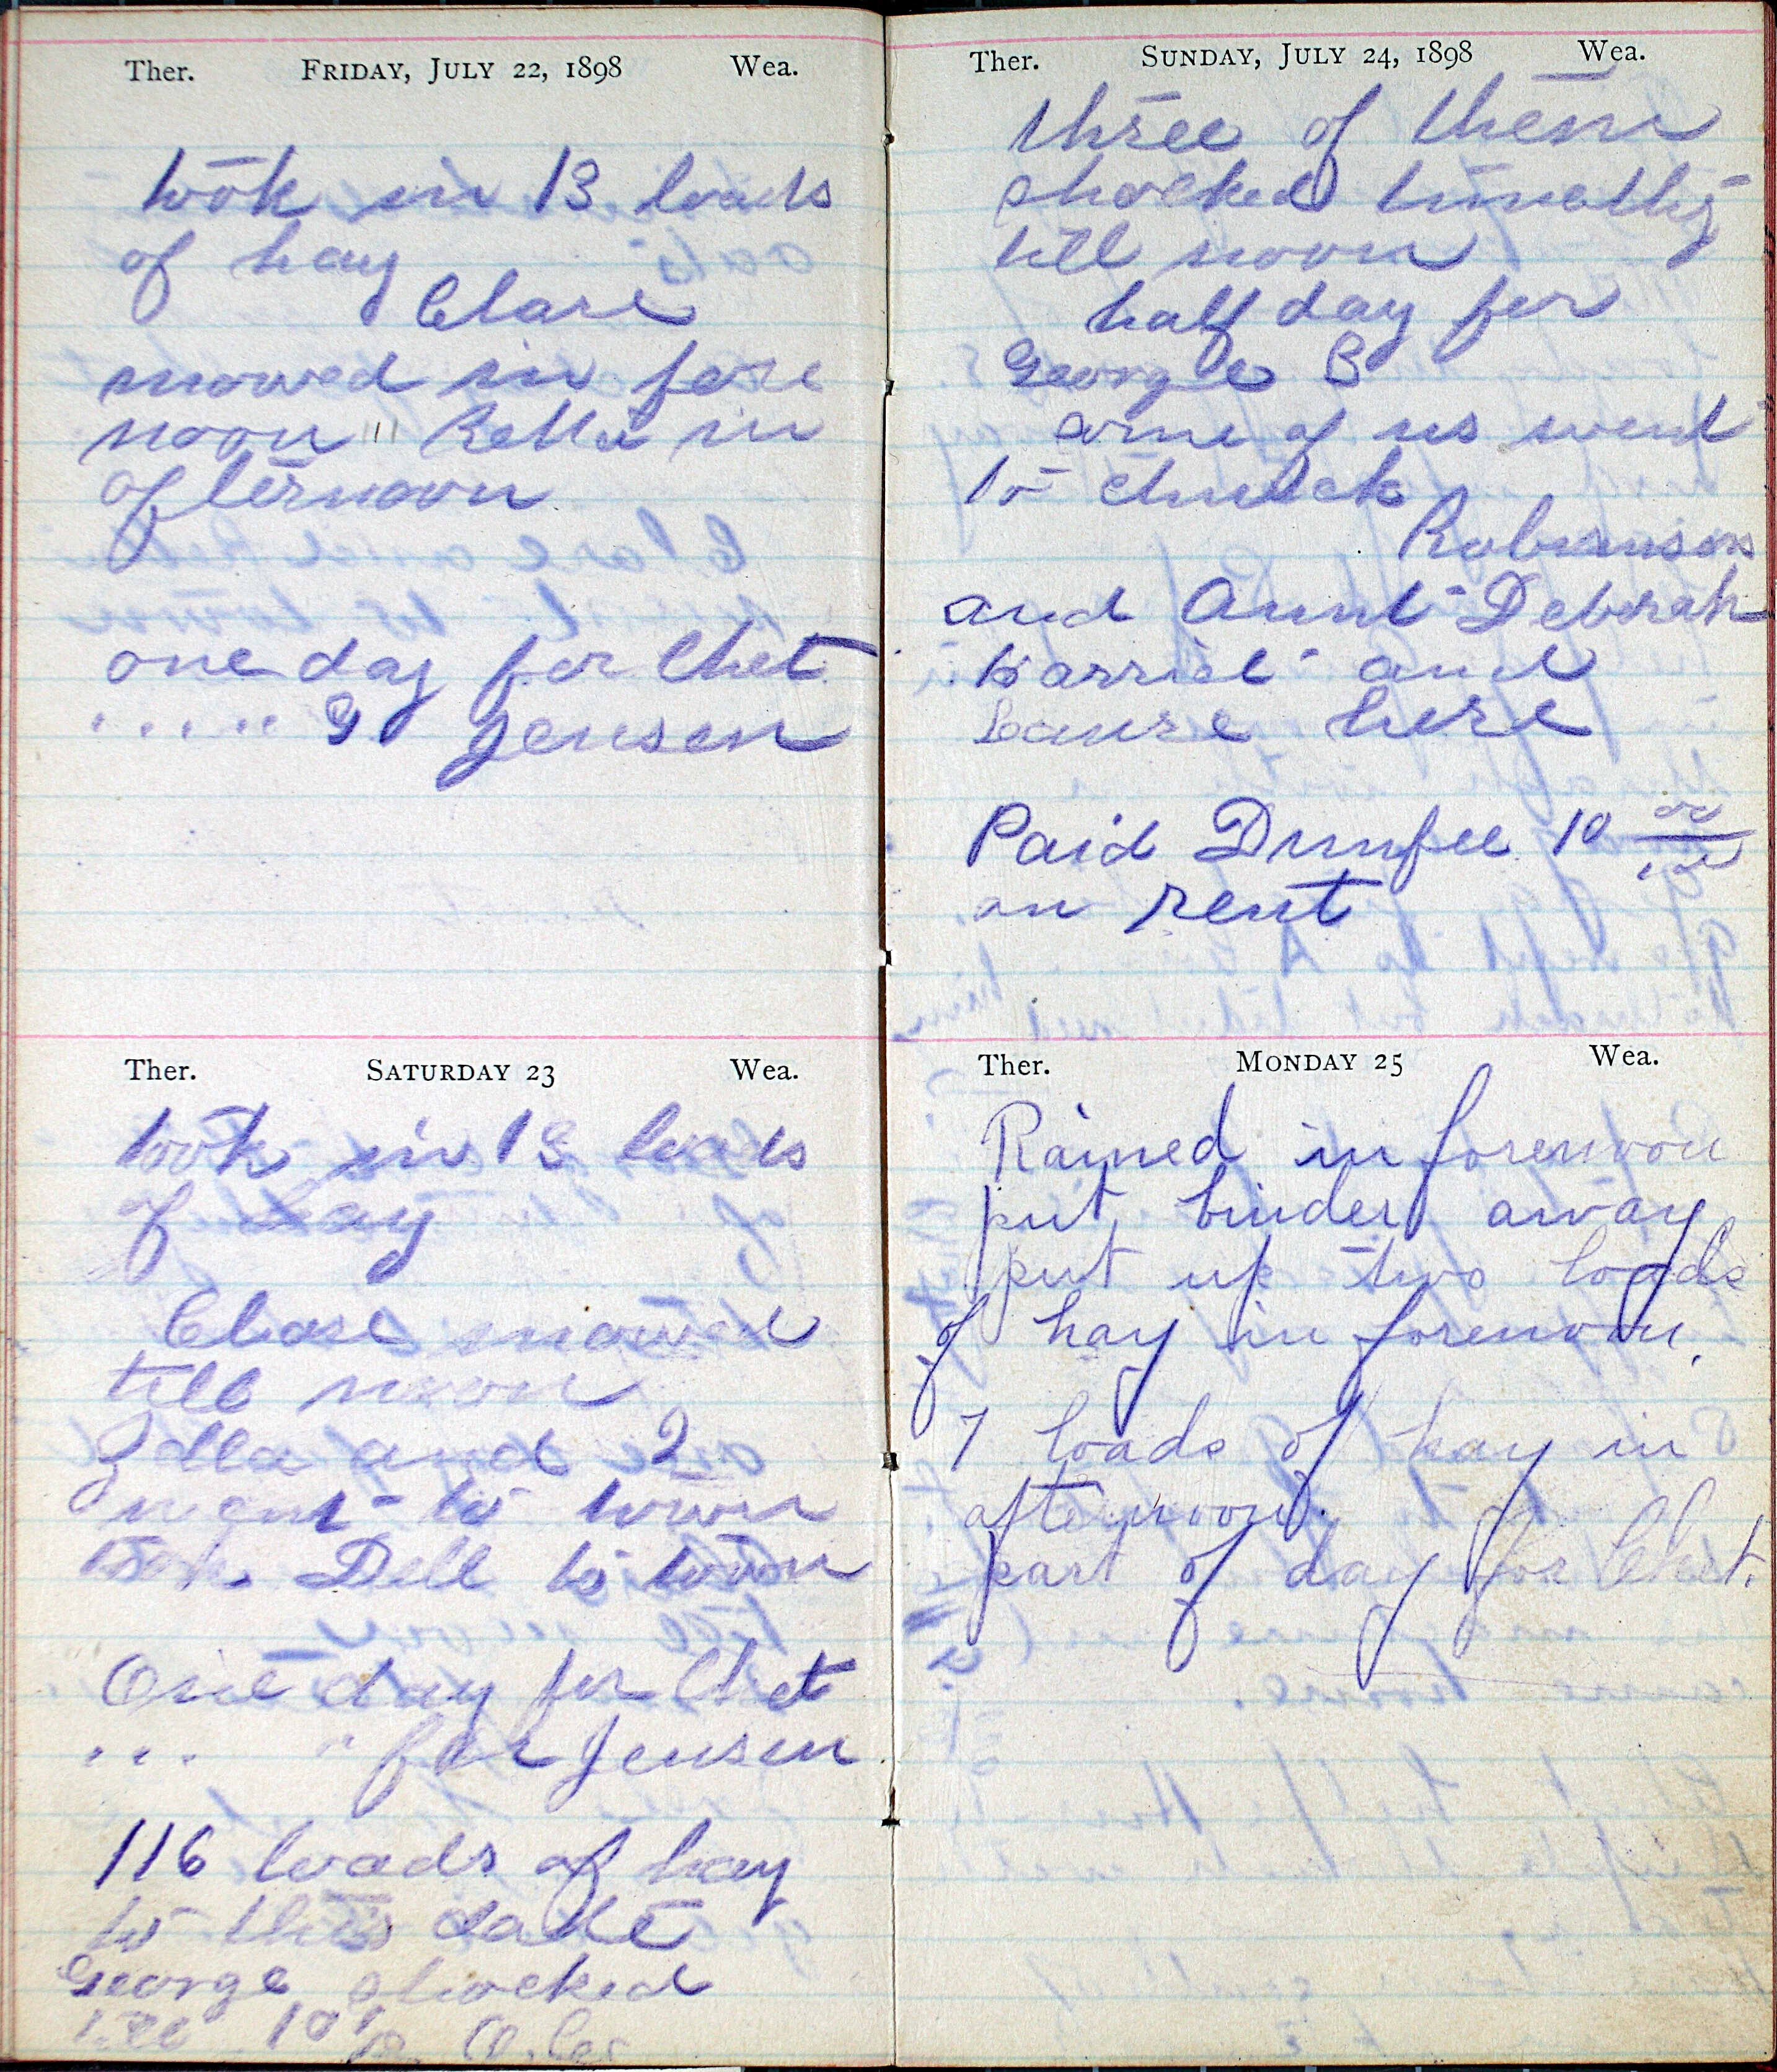 Ther. FRIDAY, JULY 22, 1898 Wea.
took in 13 loads
of hay
Clare
mowed in fore
noon " Rella in
afternoon
one day for Chet
. . . . " " G Jensen
Ther. SATURDAY 23 Wea.
took in 13 loads
of hay
Clare mowed
till noon
and I
went to town
took Dell to town
One day for Chet
. . . " for Jensen
116 loads of hay
to this date
George shocked
till 10
Ther. SUNDAY, JULY 24, 1898 Wea.
three of them
shocked timothy
till noon
half day for
George B
some of us went
to church
Robinsons
and Aunt Deborah
Harriet and
Laure here
Paid Dunfee 10 00
on rent
Ther. MONDAY 25 Wea.
Rained in forenoon
put binder away
put up two loads
of hay in forenoon.
7 loads of hay in
afternoon.
part of day for Chet.